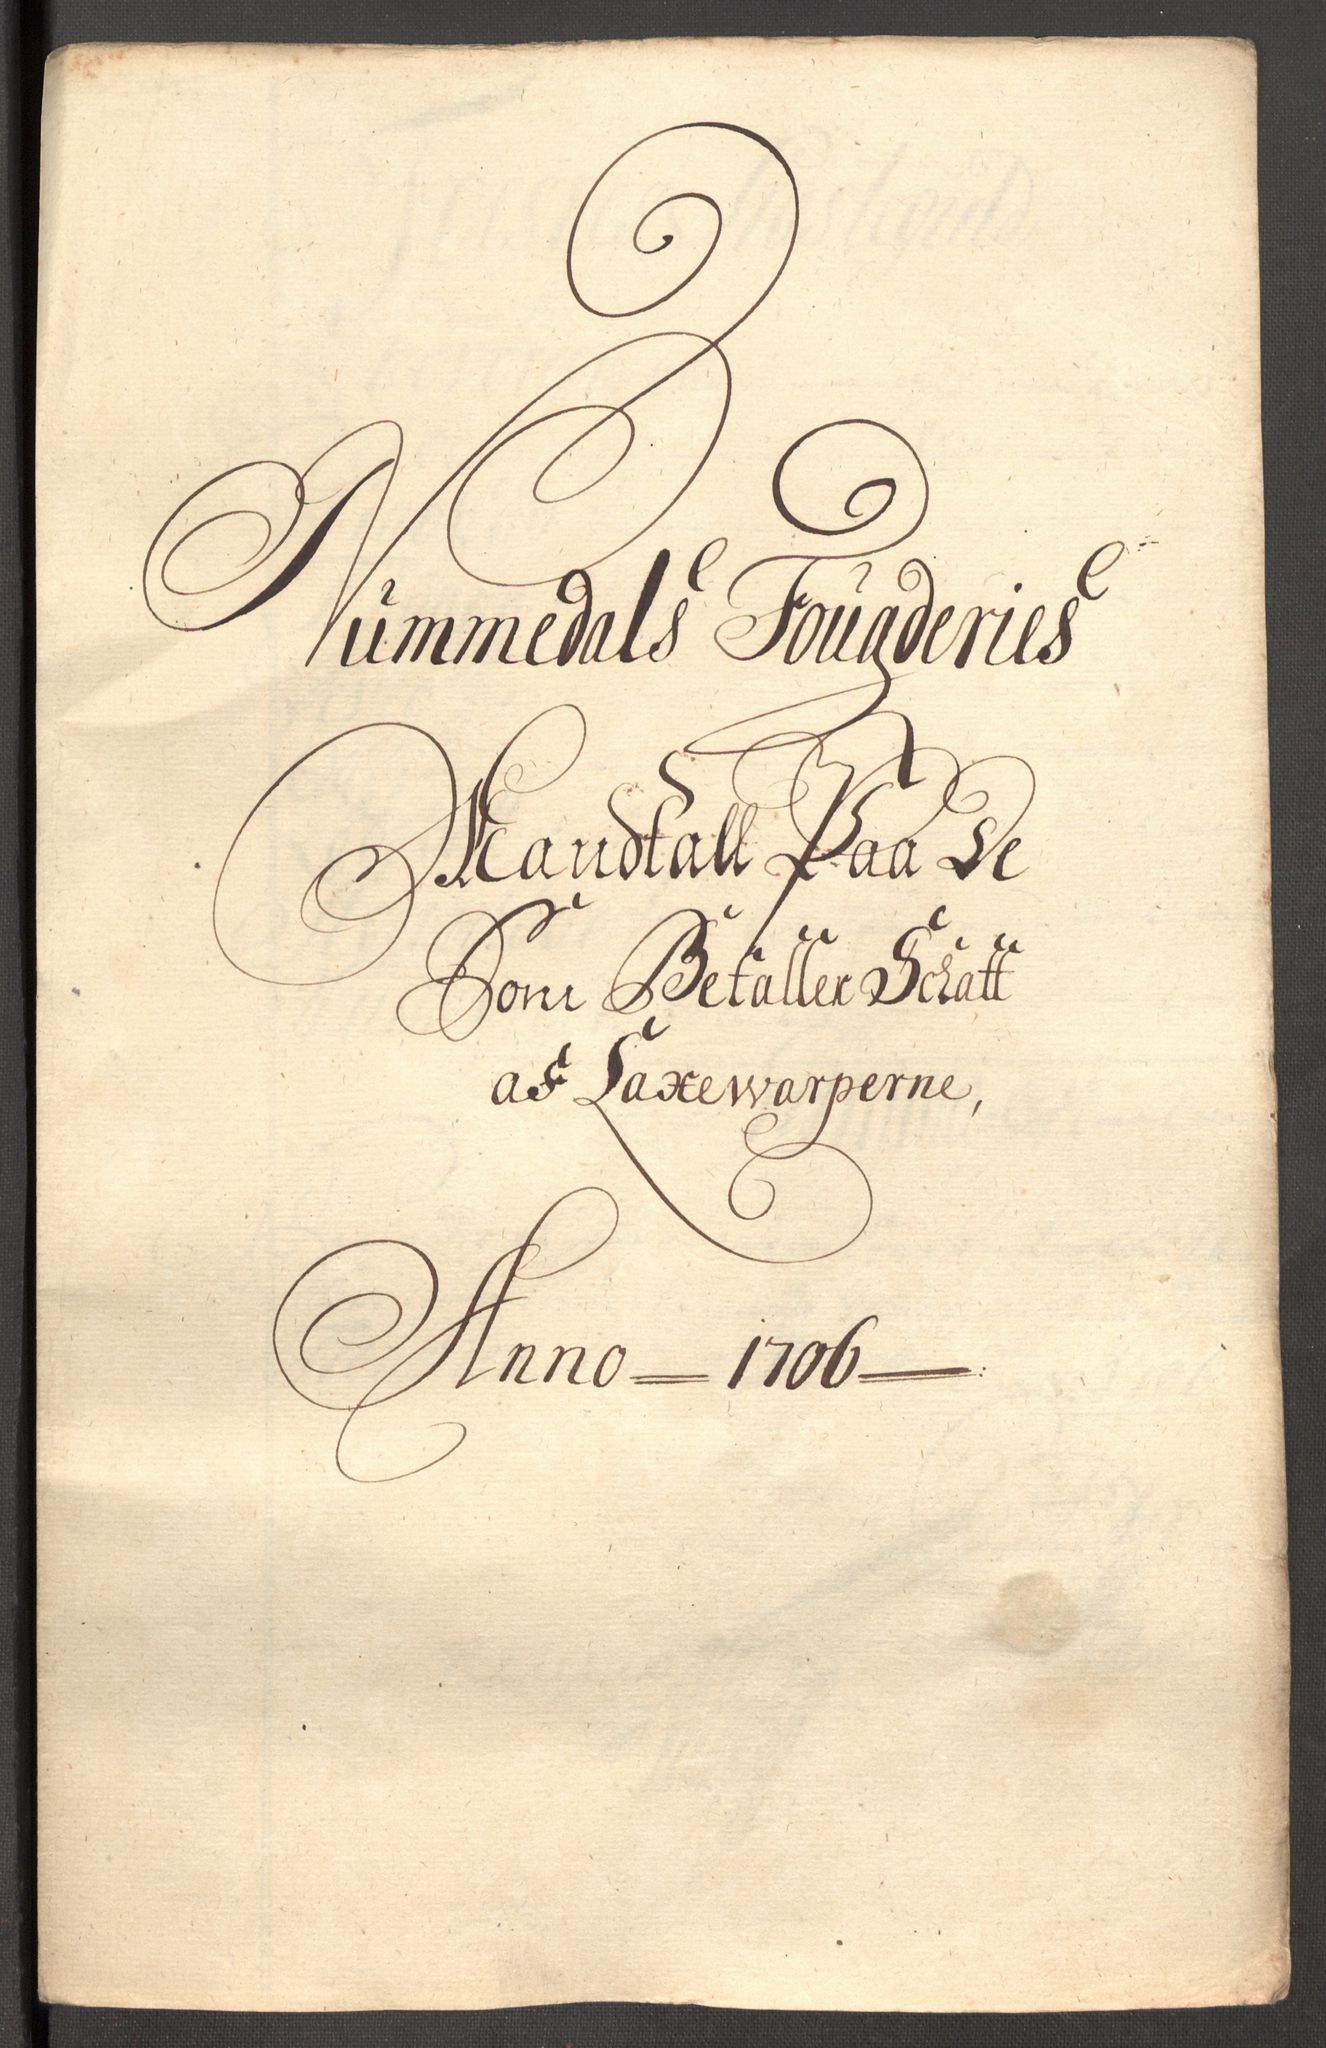 Nummedals Fougderies
Mandtall Paa De
Som Betaller Schatt
af Laxewarperne,
Anno 1706